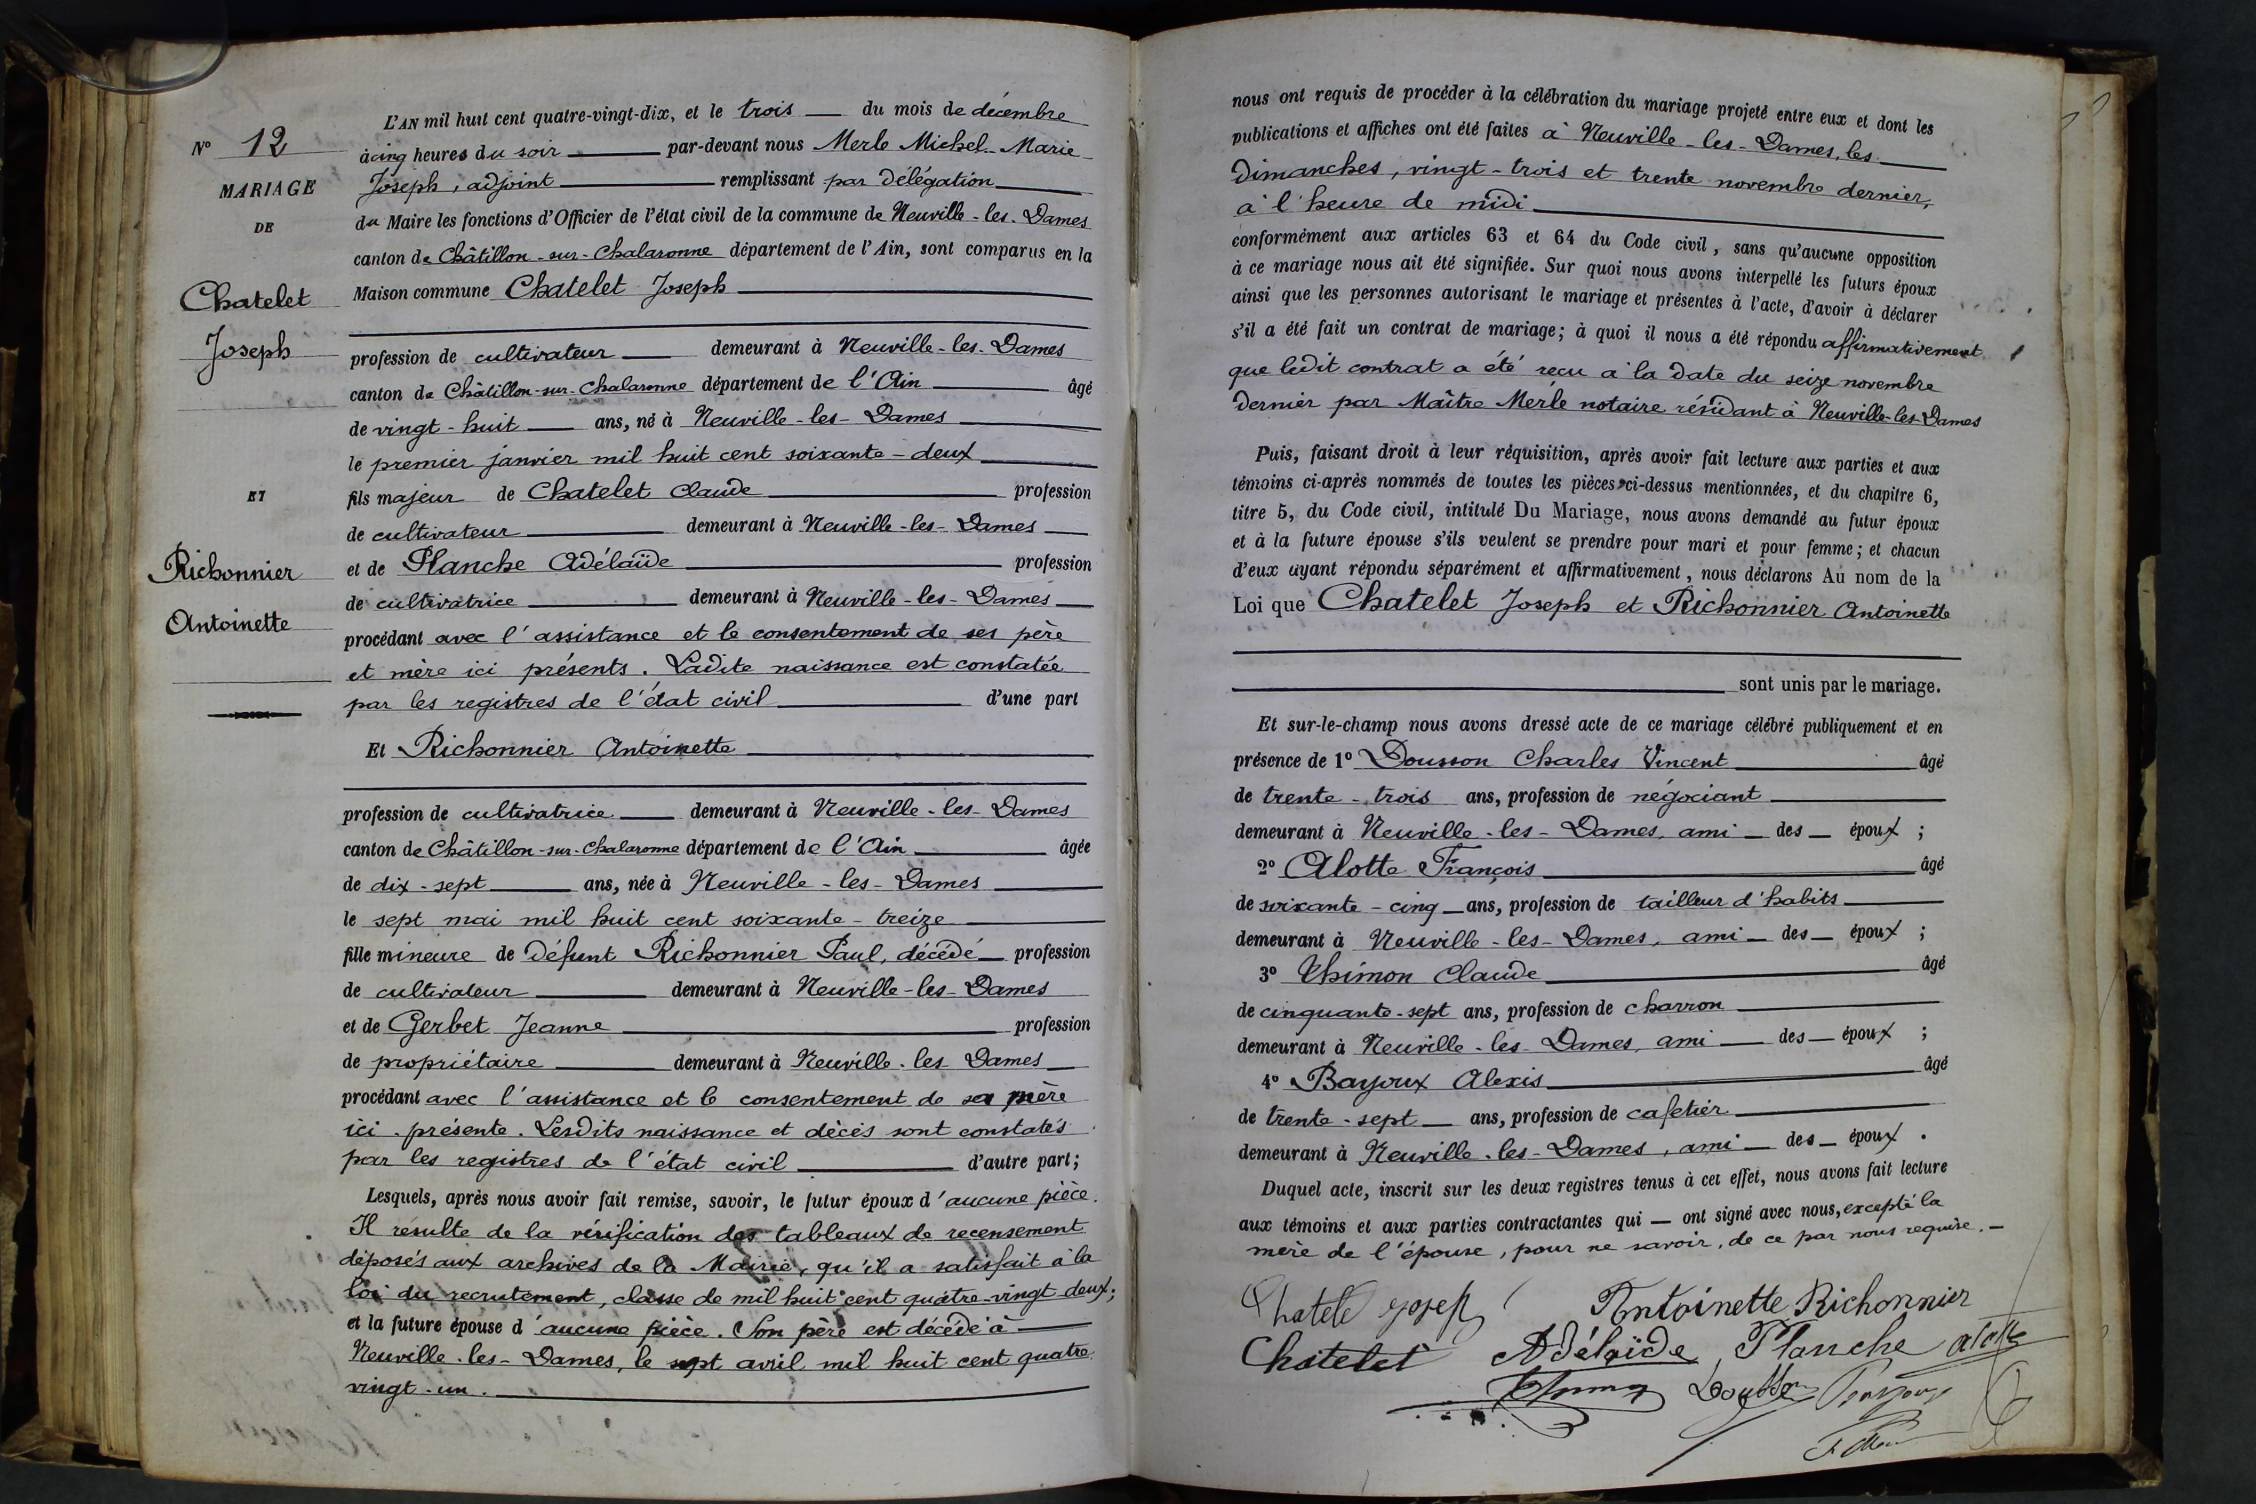 L'AN mil huit cent quatre-vingt-dix, et le trois du mois de décembre
N° 12
à cinq heures du soir par-devant nous Merle Michel-Marie-
MARIAGE
Joseph, adjoint remplissant par délégation
DE
du Maire les fonctions d'Officier de l'état civil de la commune de Neuville-les-Dames
canton de Châtillon-sur-Chalaronne département de l'Ain, sont comparus en la
Chatelet
Maison commune Chatelet Joseph
Joseph
profession de cultivateur demeurant à Neuville-les-Dames
canton de Châtillon-sur-Chalaronne département de l'Ain âgé
de vingt-huit ans, né à Neuville-les-Dames
le premier janvier mil huit cent soixante-deux
ET
fils majeur de Chatelet Claude profession
de cultivateur demeurant à Neuville-les-Dames
Richonnier
et de Planche Adélaïde profession
de cultivatrice demeurant à Neuville-les-Dames
Antoinette
procédant avec l'assistance et le consentement de ses père
et mère ici présents. Ladite naissance est constatée
par les registres de l'état civil d'une part
Et Richonnier Antoinette
profession de cultivatrice demeurant à Neuville-les-Dames
canton de Châtillon-sur-Chalaronne département de l'Ain âgée
de dix-sept ans, née à Neuville-les-Dames
le sept mai mil huit cent soixante-treize
fille mineure de défunt Richonnier Paul, décédé profession
de cultivateur demeurant à Neuville-les-Dames
et de Gerbet Jeanne profession
de propriétaire demeurant à Neuville-les Dames
procédant avec l'assistance et le consentement de sa mère
ici présente. Lesdits naissance et décès sont constatés
par les registres de l'état civil d'autre part;
Lesquels, après nous avoir fait remise, savoir, le futur époux d'aucune pièce.
Il résulte de la vérification des tableaux de recensement
déposés aux archives de la Mairie, qu'il a satisfait à la
loi du recrutement, classe de mil huit cent quatre-vingt deux;
et la future épouse d'aucune pièce. Son père est décédé à
Neuville-les-Dames, le sept avril mil huit cent quatre
vingt-un.
nous ont requis de procéder à la célébration du mariage projeté entre eux et dont les
publications et affiches ont été faites à Neuville-les-Dames, les
dimanches, vingt-trois et trente novembre dernier,
à l'heure de midi
conformément aux articles 63 et 64 du Code civil, sans qu'aucune opposition
à ce mariage nous ait été signifiée. Sur quoi nous avons interpellé les futurs époux
ainsi que les personnes autorisant le mariage et présentes à l'acte, d'avoir à déclarer
s'il a été fait un contrat de mariage; à quoi il nous a été répondu affirmativement
que ledit contrat a été reçu à la date du seize novembre
dernier par Maître Merle notaire résidant à Neuville-les-Dames
Puis, faisant droit à leur réquisition, après avoir fait lecture aux parties et aux
témoins ci-après nommés de toutes les pièces ci-dessus mentionnées, et du chapitre 6,
titre 5, du Code civil, intitulé Du Mariage, nous avons demandé au futur époux
et à la future épouse s'ils veulent se prendre pour mari et pour femme; et chacun
d'eux ayant répondu séparément et affirmativement, nous déclarons Au nom de la
Loi que Chatelet Joseph et Richonnier Antoinette
sont unis par le mariage.
Et sur-le-champ nous avons dressé acte de ce mariage célébré publiquement et en
présence de 1° Dousson Charles Vincent âgé
de trente-trois ans, profession de négociant
demeurant à Neuville-les-Dames, ami des époux ;
2° Alotte François âgé
de soixante-cinq ans, profession de tailleur d'habits
demeurant à Neuville-les-Dames, ami des époux ;
3° Thimon Claude âgé
de cinquante-sept ans, profession de charron
demeurant à Neuville-les-Dames, ami des époux ;
4° Bayoux Alexis âgé
de trente-sept ans, profession de cafetier
demeurant à Neuville-les-Dames, ami des époux.
Duquel acte, inscrit sur les deux registres tenus à cet effet, nous avons fait lecture
aux témoins et aux parties contractantes qui ont signé avec nous, excepté la
mère de l'épouse, pour ne savoir, de ce par nous requise.
Chatele Josef Antoinette Richonnier
Chatelet Adélaïde Planche alotte